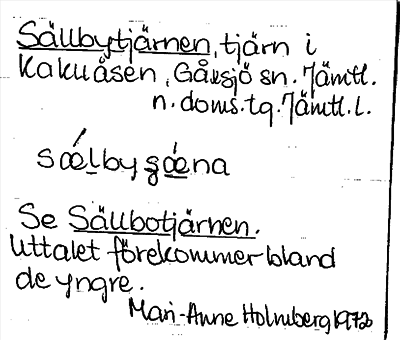 Sällbytjärnen, tjärn i
Kakuåsen, Gåxsjö sn. Jämtl.
n. doms. tg. Jämtl. l.
sǽlbyʂǽna
Se Sällbotjärnen.
Uttalet förekommer bland
de yngre.
Mari-Anne Holmberg 1972